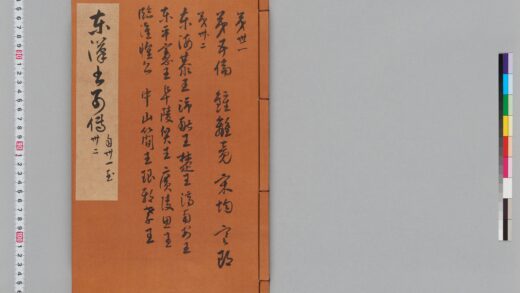 第卅一
第五倫 鍾離意 宋均 寒朗
第卅二
東海恭王 沛獻王 楚王 濟南安王
東平憲王 阜陵質王 廣陵思王
臨淮懷公 中山簡王 琅邪孝王
東漢書列傳
自卅一至
卅二